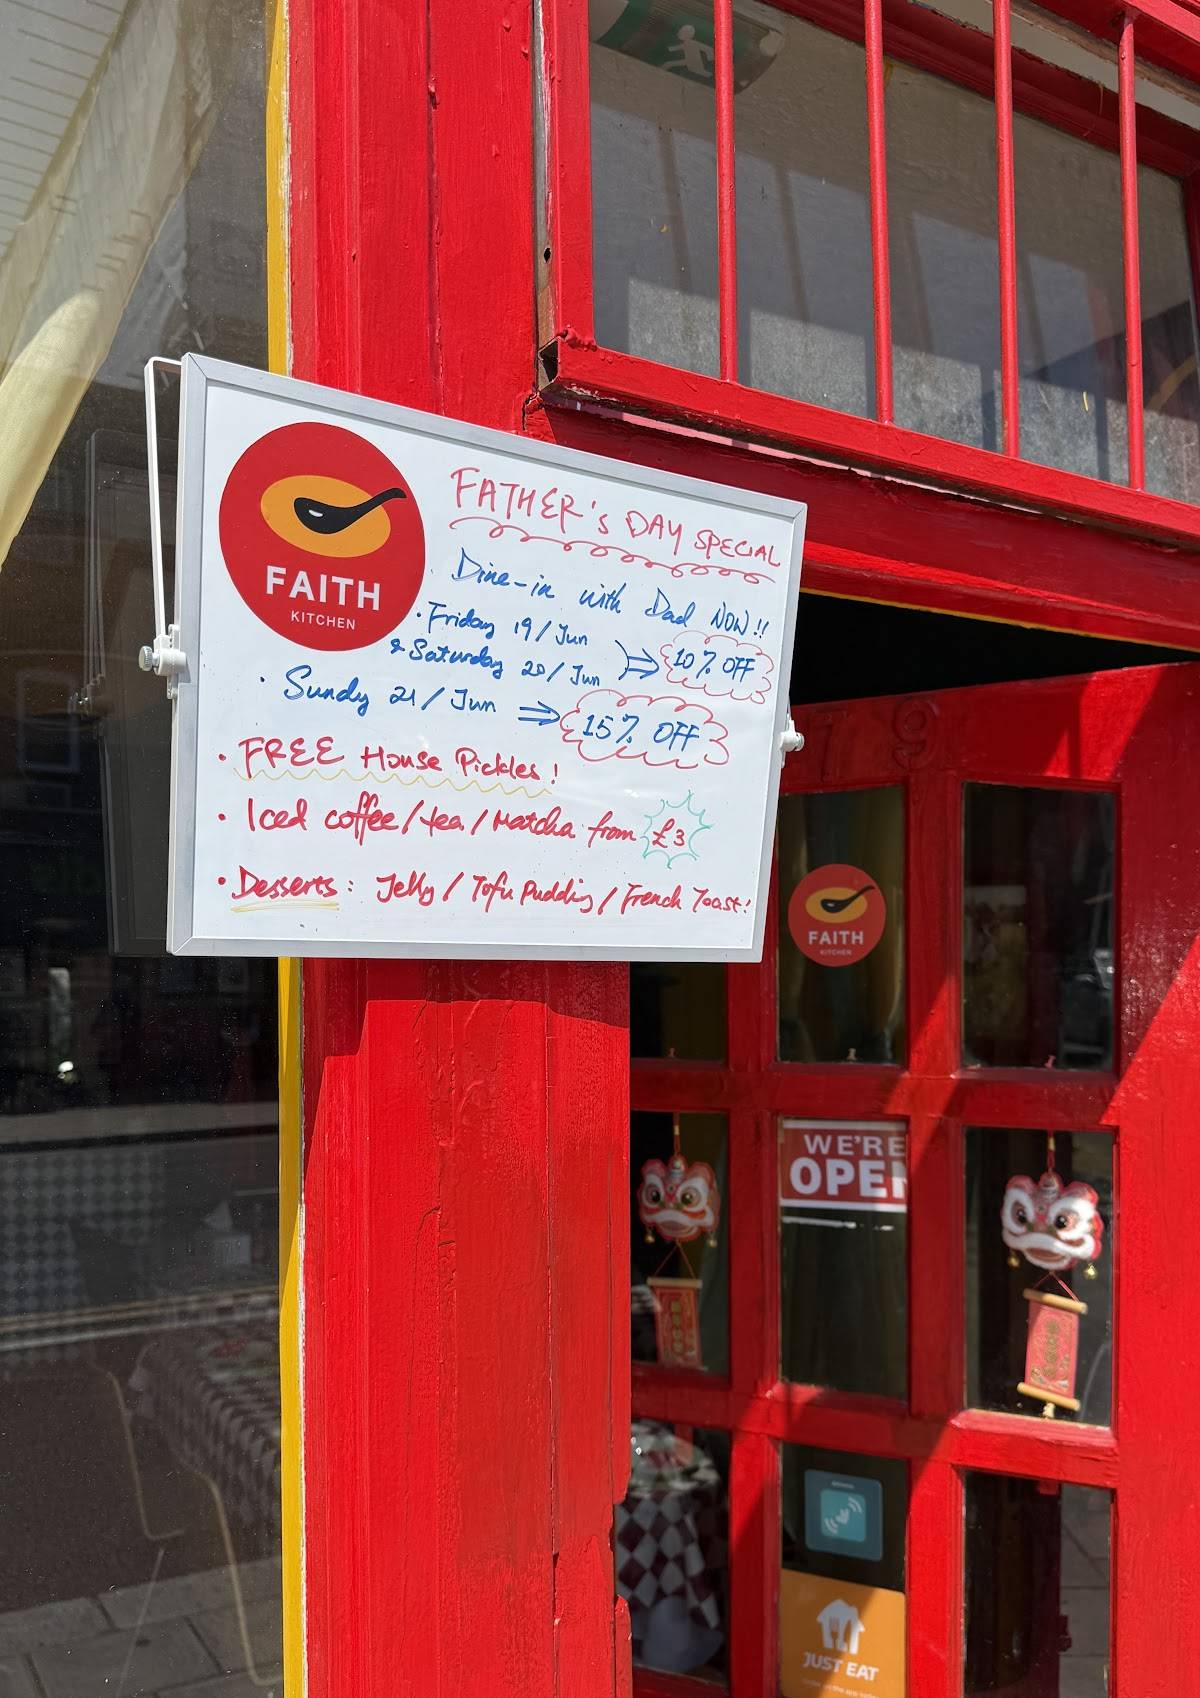 FAITH
KITCHEN
FATHER'S DAY SPECIAL
Dine-in with Dad NOW!!
· Friday 19/Jun
& Saturday 20/Jun ⇒ 10% OFF
· Sundy 21/Jun ⇒ 15% OFF
· FREE House Pickles!
· Iced coffee/tea/Matcha from £3
· Desserts: Jelly/Tofu Pudding/French Toast!
79
FAITH
KITCHEN
WE'RE
OPEN
JUST EAT